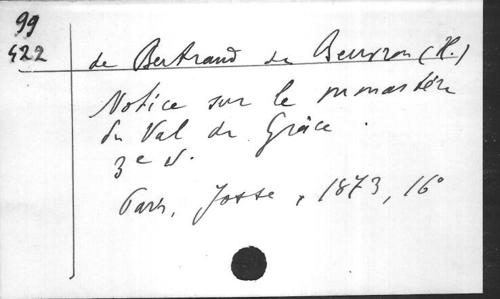 99
422
de Bertrand de Beuvron (H.)
Notice sur le monastère
du Val de Grâce.
3e d.
Paris, Josse, 1873, 16°